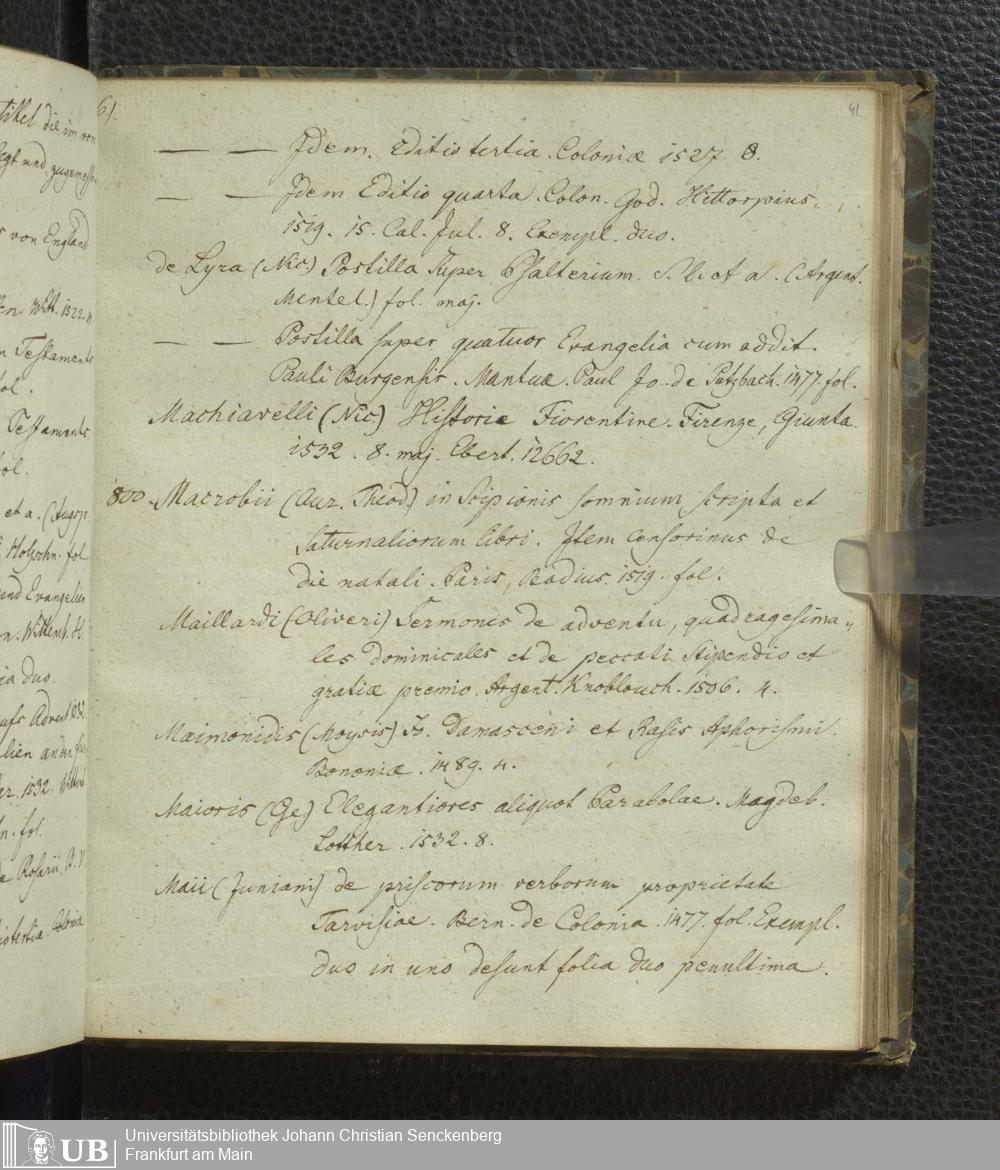 tikel die im von
legt und zugemessen
von England
Witt. 1522. 4
Testaments
fol.
Testaments.
fol.
et a. (Augsp
Holzschn. fol
und Evangelien
Wittenb. H.
ia duo.
aufs Advent 1532
lien an den
er. 1532.
n. fol.
de Rosarii B. V.
tertia. Colonia
61.
41.
— — Idem. Editio tertia. Coloniæ 1527. 8.
— — Idem Editio quarta. Colon. God. Hittorpius.
1519. 15. Cal. Jul. 8. Exempl. duo.
de Lyra (Nic) Postilla super Psalterium. S. l. et a. (Argent.
Mentel.) fol. maj.
— — Postilla super quatuor Evangelia cum addit.
Pauli Burgensis. Mantuæ. Paul Jo. de Putzbach. 1477. fol.
Machiavelli (Nic) Historie Fiorentine. Firenze, Giunta.
1532. 8. maj. Ebert. 12662.
800 Macrobii (Aur. Theod.) in Scipionis somnium scripta et
Saturnaliorum libri. Item Censorinus de
die natali. Paris, Badius. 1519. fol.
Maillardi (Oliveri) Sermones de adventu, quadragesima„
les dominicales et de peccati Stipendio et
gratiæ premio. Argent. Knoblouch. 1506. 4.
Maimonidis (Moysis) Jo. Damasceni et Rasis Aphorismi.
Bononiæ. 1489. 4.
Maioris (Ge) Elegantiores aliquot Parabolae. Magdeb.
Lotther. 1532. 8.
Maii (Juniani) de priscorum verborum proprietate
Tarvisiae. Bern. de Colonia. 1477. fol. Exempl.
duo in uno desunt folia duo penultima.
UB
Universitätsbibliothek Johann Christian Senckenberg
Frankfurt am Main